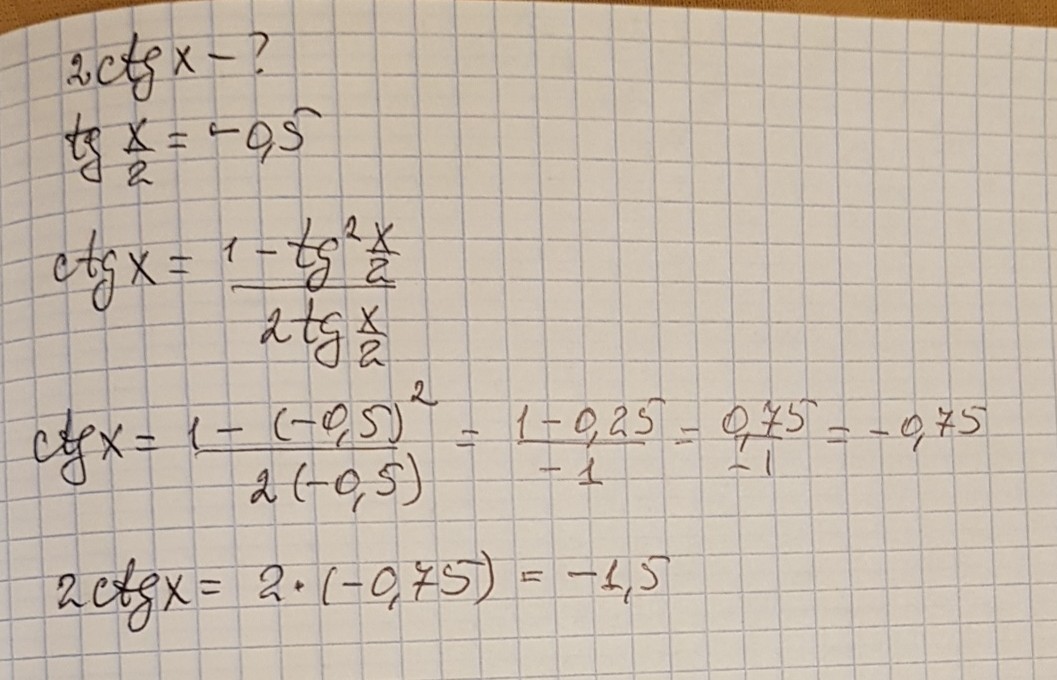 2ctg x - ?
tg x/2 = -0,5
ctg x = (1 - tg² x/2) / (2 tg x/2)
ctg x = (1 - (-0,5)²) / (2(-0,5)) = (1 - 0,25) / (-1) = 0,75 / (-1) = -0,75
2ctg x = 2 · (-0,75) = -1,5